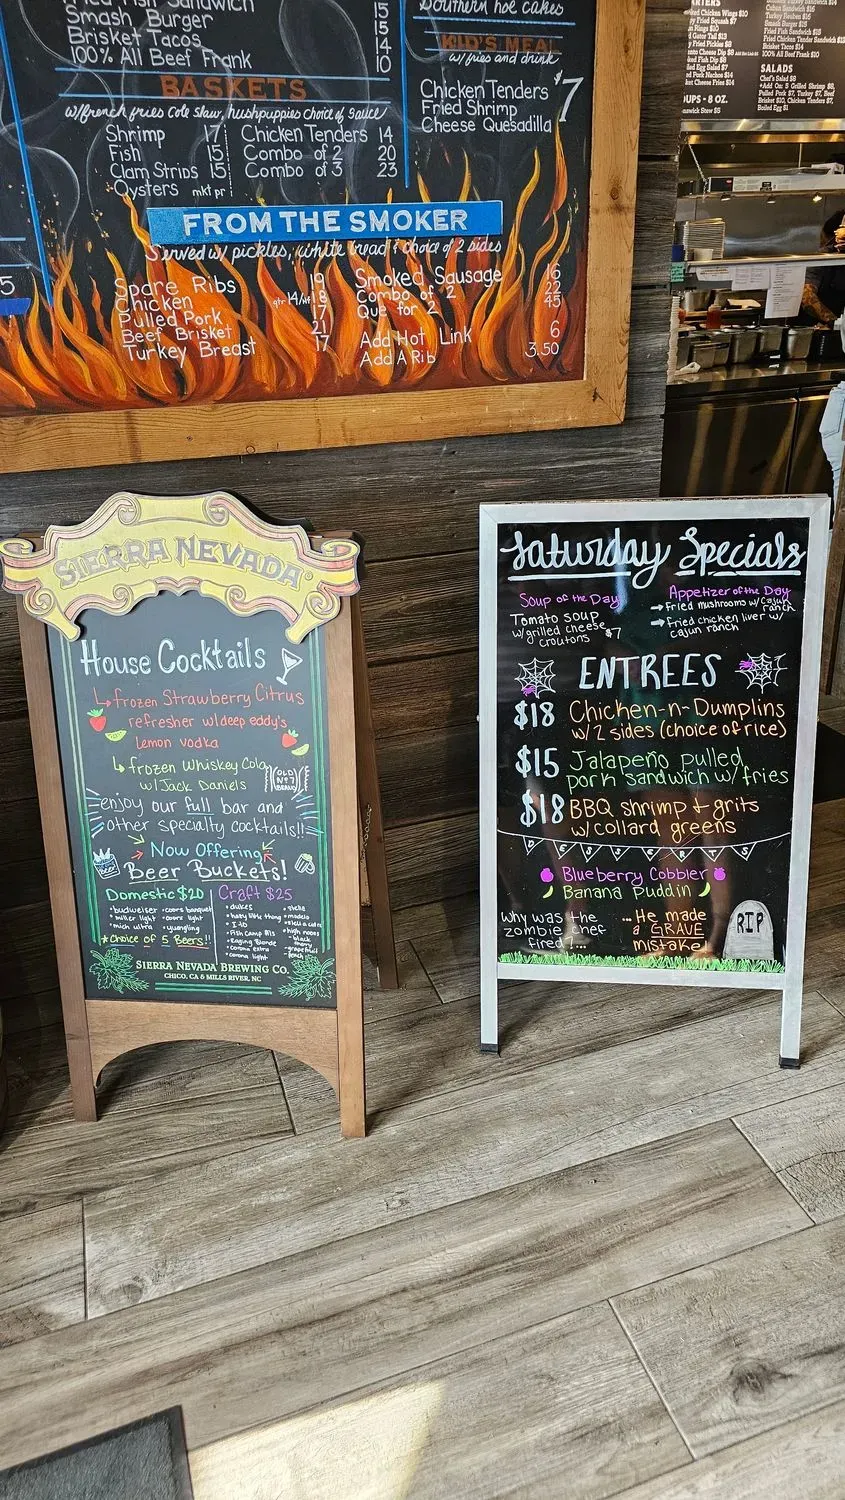 Fried Fish Sandwich 15
Smash Burger 15
Brisket Tacos 14
100% All Beef Frank 10
BASKETS
w/french fries Cole slaw, hushpuppies choice of sauce
Shrimp 17
Fish 15
Clam Strips 15
Oysters mkt pr
Chicken Tenders 14
Combo of 2 20
Combo of 3 23
Southern hoe cakes
KID'S MEAL
w/ fries and drink
Chicken Tenders
Fried Shrimp
Cheese Quesadilla
$7
FROM THE SMOKER
Served w/ pickles, white bread & choice of 2 sides
Spare Ribs 19
Chicken qtr 14/hlf 18
Pulled Pork 17
Beef Brisket 21
Turkey Breast 17
Smoked Sausage 16
Combo of 2 22
Que for 2 45
Add Hot Link 6
Add A Rib 3.50
5
SALADS
Chef's Salad $8
SIERRA NEVADA
House Cocktails
frozen Strawberry Citrus
refresher w/deep eddy's
Lemon vodka
frozen Whiskey Cola
w/ Jack Daniels
OLD
No 7
BRAND
enjoy our full bar and
other specialty cocktails!!
Now Offering
Beer Buckets!
BEER
Domestic $20
•budweiser •coors banquet
•miller light •coors light
•mich ultra •yuengling
*Choice of 5 Beers!!
Craft $25
•dukes
•hazy little thing
•I-10
•Fish Camp
•Raging Blonde
•corona extra
•corona light
•stella
•modelo
•high noons
-black cherry
-grapefruit
-peach
SIERRA NEVADA BREWING CO.
CHICO, CA & MILLS RIVER, NC
Saturday Specials
Soup of the Day
Tomato soup
w/grilled cheese
croutons $7
Appetizer of the Day
Fried mushrooms w/ cajun
ranch
Fried chicken liver w/
cajun ranch
ENTREES
$18 Chicken-n-Dumplins
w/ 2 sides (choice of rice)
$15 Jalapeño pulled
pork sandwich w/ fries
$18 BBQ shrimp + grits
w/ collard greens
DESSERTS
Blueberry Cobbler
Banana Puddin
Why was the
zombie chef
fired?...
... He made
a GRAVE
mistake!
RIP